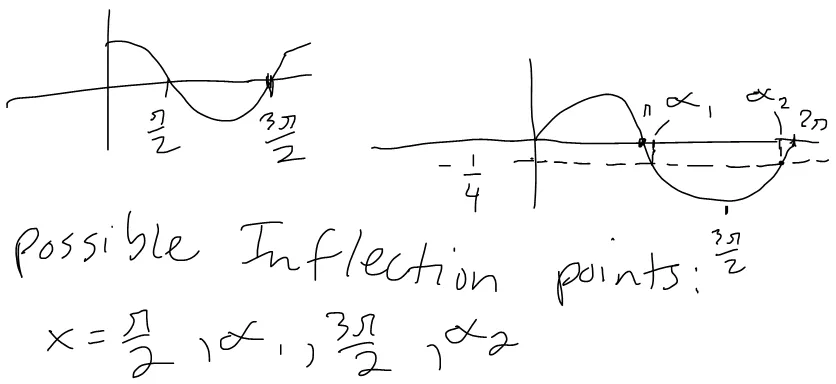 π/2 3π/2
π α₁ α₂ 2π
- 1/4
3π/2
Possible Inflection points:
x = π/2, α₁, 3π/2, α₂